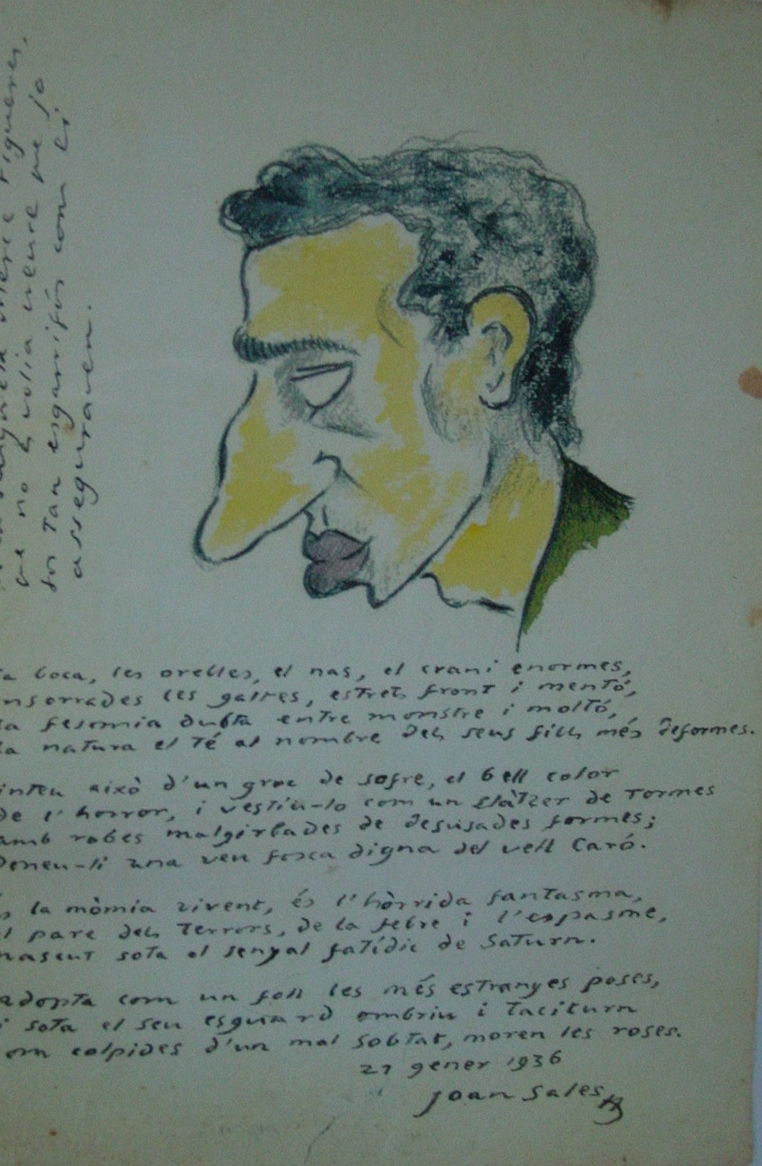 que no s volia creure que jo
fos tan esgarrifós com li
asseguraven.
la boca, les orelles, el nas, el crani enormes,
ensorrades les galtes, estrets front i mentó,
la fesomia dubta entre monstre i moltó,
la natura el té al nombre dels seus fills més deformes.
inteu això d'un groc de sofre, el bell color
de l'horror, i vestiu-lo com un Llàtzer de Tormes
amb robes malgirbades de desusades formes;
Doneu-li una veu fosca digna del vell Caró.
és la mòmia vivent, és l'hòrrida fantasma,
el pare dels terrors, de la febre i l'espasme,
nascut sota el senyal fatídic de Saturn.
adopta com un foll les més estranyes poses,
i sota el seu esguard ombriu i taciturn
com colpides d'un mal sobtat, moren les roses.
gener 1936
Joan Sales